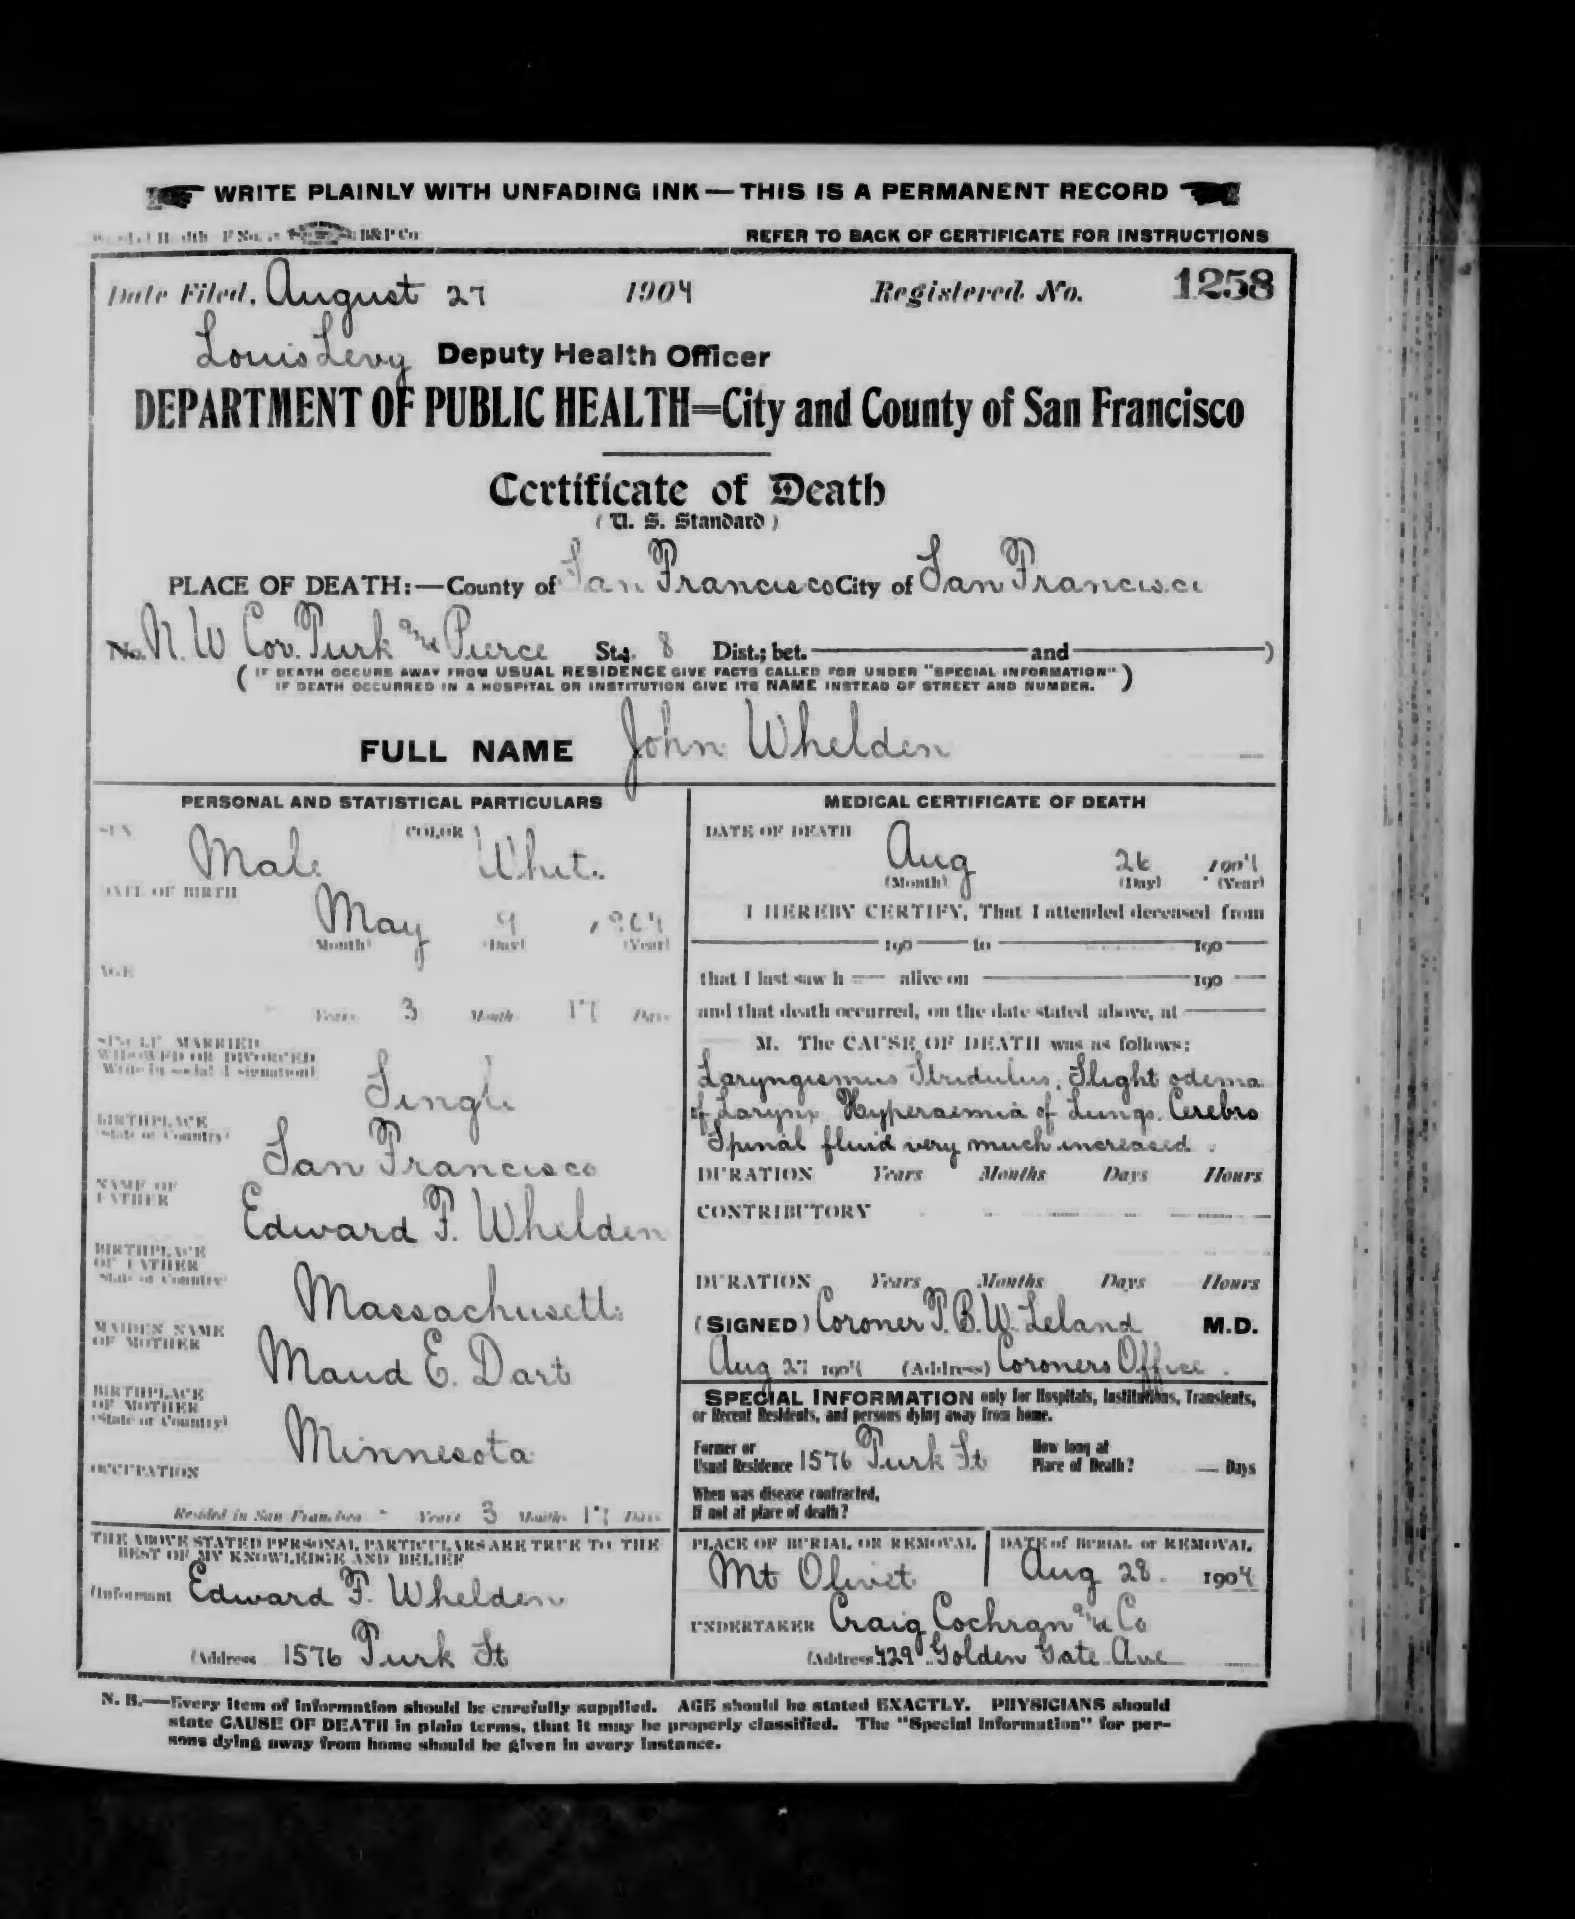 WRITE PLAINLY WITH UNFADING INK — THIS IS A PERMANENT RECORD
B&P Co
REFER TO BACK OF CERTIFICATE FOR INSTRUCTIONS
Date Filed, August 27 1904 Registered No. 1258
Louis Levy Deputy Health Officer
DEPARTMENT OF PUBLIC HEALTH=City and County of San Francisco
Certificate of Death
( U. S. Standard )
PLACE OF DEATH:—County of San Francisco City of San Francisco
No. N. W Cor. Turk and Pierce St.; 8 Dist.; bet. and )
( IF DEATH OCCURS AWAY FROM USUAL RESIDENCE GIVE FACTS CALLED FOR UNDER "SPECIAL INFORMATION"
IF DEATH OCCURRED IN A HOSPITAL OR INSTITUTION GIVE ITS NAME INSTEAD OF STREET AND NUMBER. )
FULL NAME John Whelden
PERSONAL AND STATISTICAL PARTICULARS
SEX Male COLOR White
DATE OF BIRTH
May 9 1904
(Month) (Day) (Year)
AGE
Years 3 Months 17 Days
SINGLE, MARRIED
WIDOWED OR DIVORCED
(Write in social designation)
Single
BIRTHPLACE
(State or Country)
San Francisco
NAME OF
FATHER
Edward F. Whelden
BIRTHPLACE
OF FATHER
(State or Country)
Massachusetts
MAIDEN NAME
OF MOTHER
Maud E. Dart
BIRTHPLACE
OF MOTHER
(State or Country)
Minnesota
OCCUPATION
Resided in San Francisco - Years 3 Months 17 Days
THE ABOVE STATED PERSONAL PARTICULARS ARE TRUE TO THE
BEST OF MY KNOWLEDGE AND BELIEF
(Informant Edward F. Whelden
(Address 1576 Turk St
MEDICAL CERTIFICATE OF DEATH
DATE OF DEATH
Aug 26 1904
(Month) (Day) (Year)
I HEREBY CERTIFY, That I attended deceased from
190 to 190
that I last saw h alive on 190
and that death occurred, on the date stated above, at
M. The CAUSE OF DEATH was as follows:
Laryngismus Stridulus, Slight odema
of Larynx Hyperaemia of Lungs. Cerebro
Spinal fluid very much increased.
DURATION Years Months Days Hours
CONTRIBUTORY
DURATION Years Months Days Hours
(SIGNED) Coroner T. B. W. Leland M.D.
Aug 27 1904 (Address) Coroners Office.
SPECIAL INFORMATION only for Hospitals, Institutions, Transients,
or Recent Residents, and persons dying away from home.
Former or
Usual Residence 1576 Turk St
How long at
Place of Death? Days
When was disease contracted,
If not at place of death?
PLACE OF BURIAL OR REMOVAL
Mt Olivet
DATE of BURIAL or REMOVAL
Aug 28. 1904
UNDERTAKER Craig Cochran and Co
(Address 429 Golden Gate Ave
N. B.—Every item of information should be carefully supplied. AGE should be stated EXACTLY. PHYSICIANS should
state CAUSE OF DEATH in plain terms, that it may be properly classified. The "Special Information" for per-
sons dying away from home should be given in every instance.